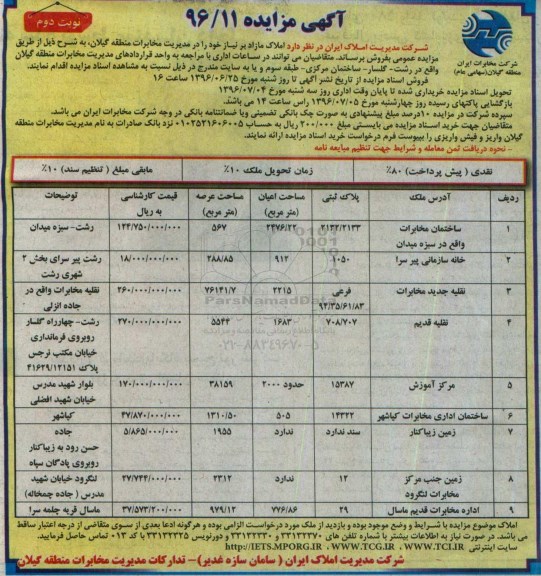 آگهی مزایده ۹۶/۱۱
نوبت دوم
شرکت مخابرات ایران
منطقه گیلان(سهامی عام)
شرکت مدیریت املاک ایران در نظر دارد املاک مازاد بر نیاز خود را در مدیریت مخابرات منطقه گیلان، به شرح ذیل از طریق
مزایده عمومی بفروش برساند. متقاضیان می توانند در ساعات اداری با مراجعه به واحد قراردادهای مدیریت مخابرات منطقه گیلان
واقع در رشت- گلسار- ساختمان مرکزی- طبقه سوم و یا به سایت های مندرج در ذیل نسبت به مشاهده اسناد مزایده اقدام نمایند.
فروش اسناد مزایده از تاریخ نشر آگهی تا روز شنبه مورخ ۱۳۹۶/۰۶/۲۵ ساعت ۱۶
تحویل اسناد مزایده خریداری شده تا پایان وقت اداری روز سه شنبه مورخ ۱۳۹۶/۰۷/۰۴
بازگشایی پاکتهای رسیده روز چهارشنبه مورخ ۱۳۹۶/۰۷/۰۵ راس ساعت ۱۴ می باشد.
سپرده شرکت در مزایده ۱۰درصد مبلغ پیشنهادی به صورت چک بانکی تضمینی ویا ضمانتنامه بانکی در وجه شرکت مخابرات ایران می باشد.
متقاضیان جهت خرید اسناد مزایده می بایستی مبلغ ۲۰۰/۰۰۰ ریال به حساب ۰۱۰۲۵۳۱۶۰۶۰۰۵ نزد بانک صادرات به نام مدیریت مخابرات منطقه
گیلان واریز و فیش واریزی را بپیوست فرم درخواست خرید اسناد مزایده ارائه نمایند.
- نحوه دریافت ثمن معامله و شرایط جهت تنظیم مبایعه نامه
نقدی ( پیش پرداخت) ۸۰٪ زمان تحویل ملک ۱۰٪ مابقی مبلغ ( تنظیم سند) ۱۰٪
ردیف آدرس ملک پلاک ثبتی مساحت اعیان (متر مربع) مساحت عرصه (متر مربع) قیمت کارشناسی به ریال توضیحات
۱ ساختمان مخابرات واقع در سبزه میدان ۲۱۳۲/۲۱۳۳ ۲۴۷۶/۲۲ ۵۶۷ ۱۲۴/۷۵۰/۰۰۰/۰۰۰ رشت- سبزه میدان
۲ خانه سازمانی پیر سرا ۱۰۵۰ ۹۱۲ ۲۸۸/۸۵ ۱۸/۰۰۰/۰۰۰/۰۰۰ رشت پیر سرای بخش ۲ شهری رشت
۳ نقلیه جدید مخابرات فرعی ۹۴/۳۵/۶۱/۸۳ ۲۲۱۵ ۷۶۱۴۱/۷ ۲۶۰/۰۰۰/۰۰۰/۰۰۰ نقلیه مخابرات واقع در جاده انزلی
۴ نقلیه قدیم ۷۰۸/۷۰۷ ۱۶۸۳ ۵۵۴۴ ۴۷۰/۰۰۰/۰۰۰/۰۰۰ رشت- چهارراه گلسار
روبروی فرمانداری
خیابان مکتب نرجس
پلاک ۴۱۶۲۹/۱۲۱۵۱
۵ مرکز آموزش ۱۵۳۸۷ حدود ۲۰۰۰ ۳۸۱۵۹ ۱۷۰/۰۰۰/۰۰۰/۰۰۰ بلوار شهید مدرس خیابان شهید افضلی
۶ ساختمان اداری مخابرات کیاشهر ۱۴۳۲۲ ۵۰۵ ۱۳۱۰/۵۰ ۴۷/۸۷۰/۰۰۰/۰۰۰ کیاشهر
۷ زمین زیباکنار سند ندارد ندارد ۱۹۵۵ ۵/۸۶۵/۰۰۰/۰۰۰ جاده
حسن رود به زیباکنار
روبروی پادگان سپاه
۸ زمین جنب مرکز مخابرات لنگرود ۱۲ ندارد ۲۳۱۲ ۲۷/۷۴۴/۰۰۰/۰۰۰ لنگرود خیابان شهید مدرس ( جاده چمخاله)
۹ اداره مخابرات قدیم ماسال ۲۹ ۷۷۶/۸۶ ۹۷۹/۱۲ ۳۷/۵۷۳/۲۰۰/۰۰۰ ماسال قریه چلمه سرا
املاک موضوع مزایده با شرایط و وضع موجود بوده و بازدید از ملک مورد درخواست الزامی بوده و هرگونه ادعا بعدی از سوی متقاضی از درجه اعتبار ساقط
می باشد. در صورت نیاز به اطلاعات بیشتر با شماره تلفن های ۳۳۱۳۲۳۷۰ و ۳۳۱۳۲۳۳۰ و دورنویس ۳۳۱۳۲۳۲۵ با کد ۰۱۳ تماس حاصل فرمایید.
سایت اینترنتی http://IETS.MPORG.IR ، WWW.TCG.IR ، WWW.TCI.IR
شرکت مدیریت املاک ایران ( سامان سازه غدیر) – تدارکات مدیریت مخابرات منطقه گیلان
ParsNamadData
۰۲۱-۸۸۳۴۹۶۷۰-۵